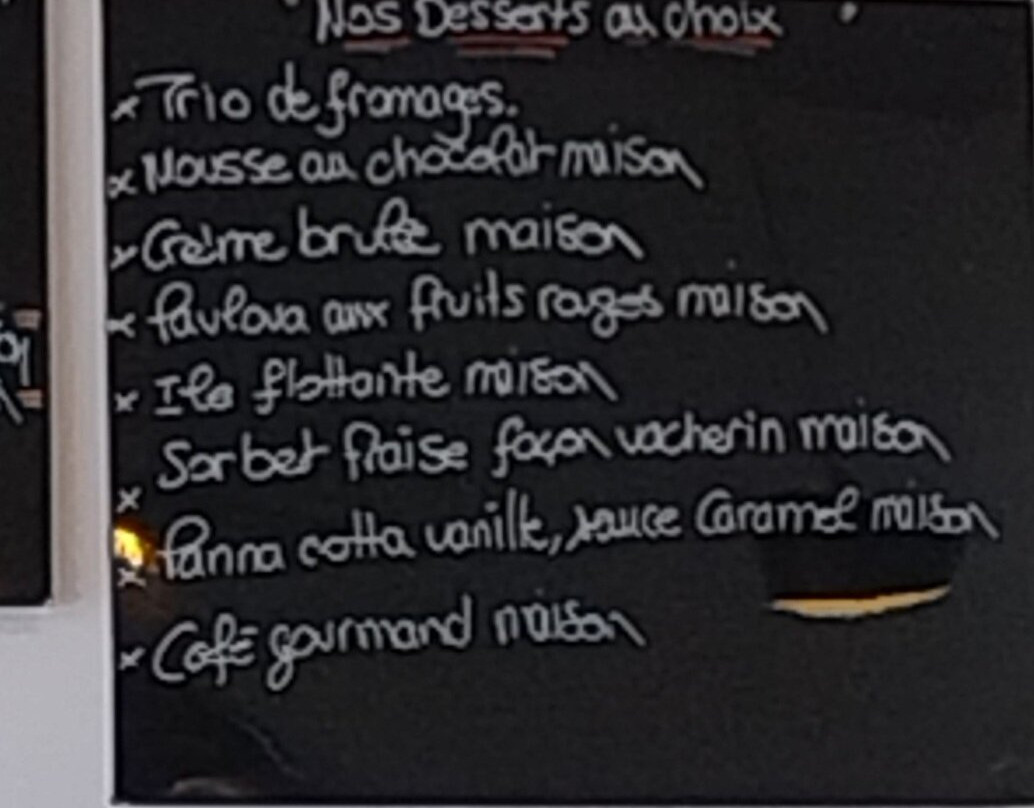 Nos Desserts au choix
x Trio de fromages.
x Mousse au chocolat maison
x Crème brulée maison
x Pavlova aux fruits rouges maison
x Ile flottante maison
x Sorbet fraise façon vacherin maison
x Panna cotta vanille, sauce Caramel maison
x Café gourmand maison